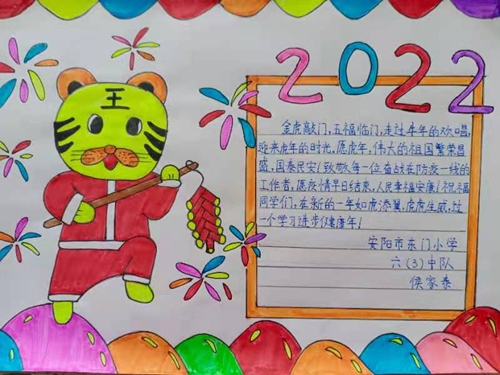 2022
王
金虎敲门，五福临门，走过牛年的欢唱，
迎来虎年的时光，愿虎年，伟大的祖国繁荣昌
盛，国泰民安！致敬每一位奋战在防疫一线的
工作者，愿疫情早日结束，人民幸福安康！祝福
同学们，在新的一年如虎添翼，虎虎生威，过
一个学习进步健康年！
安阳市东门小学
六（3）中队
侯家泰